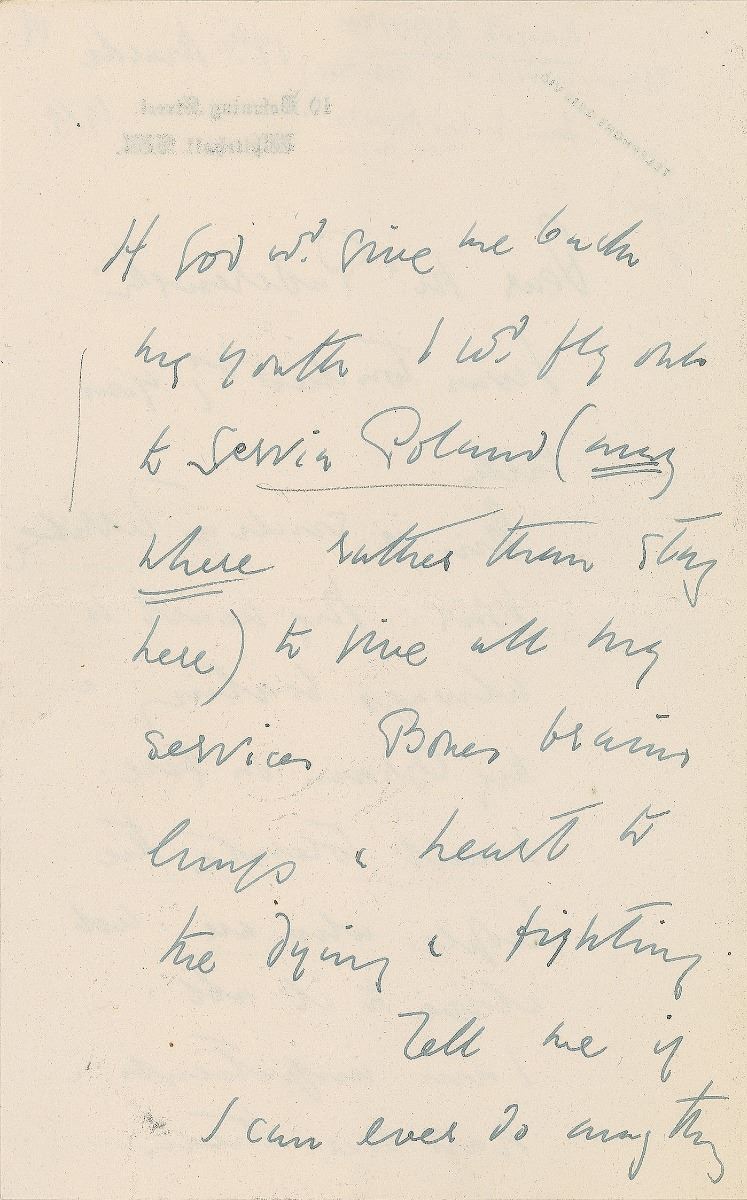 If God wd. give me back
my youth I wd. fly out
to Servia Poland (any
where rather than stay
here) to give all my
services Bones brains
lungs & heart to
the dying & fighting.
Tell me if
I can ever do anything